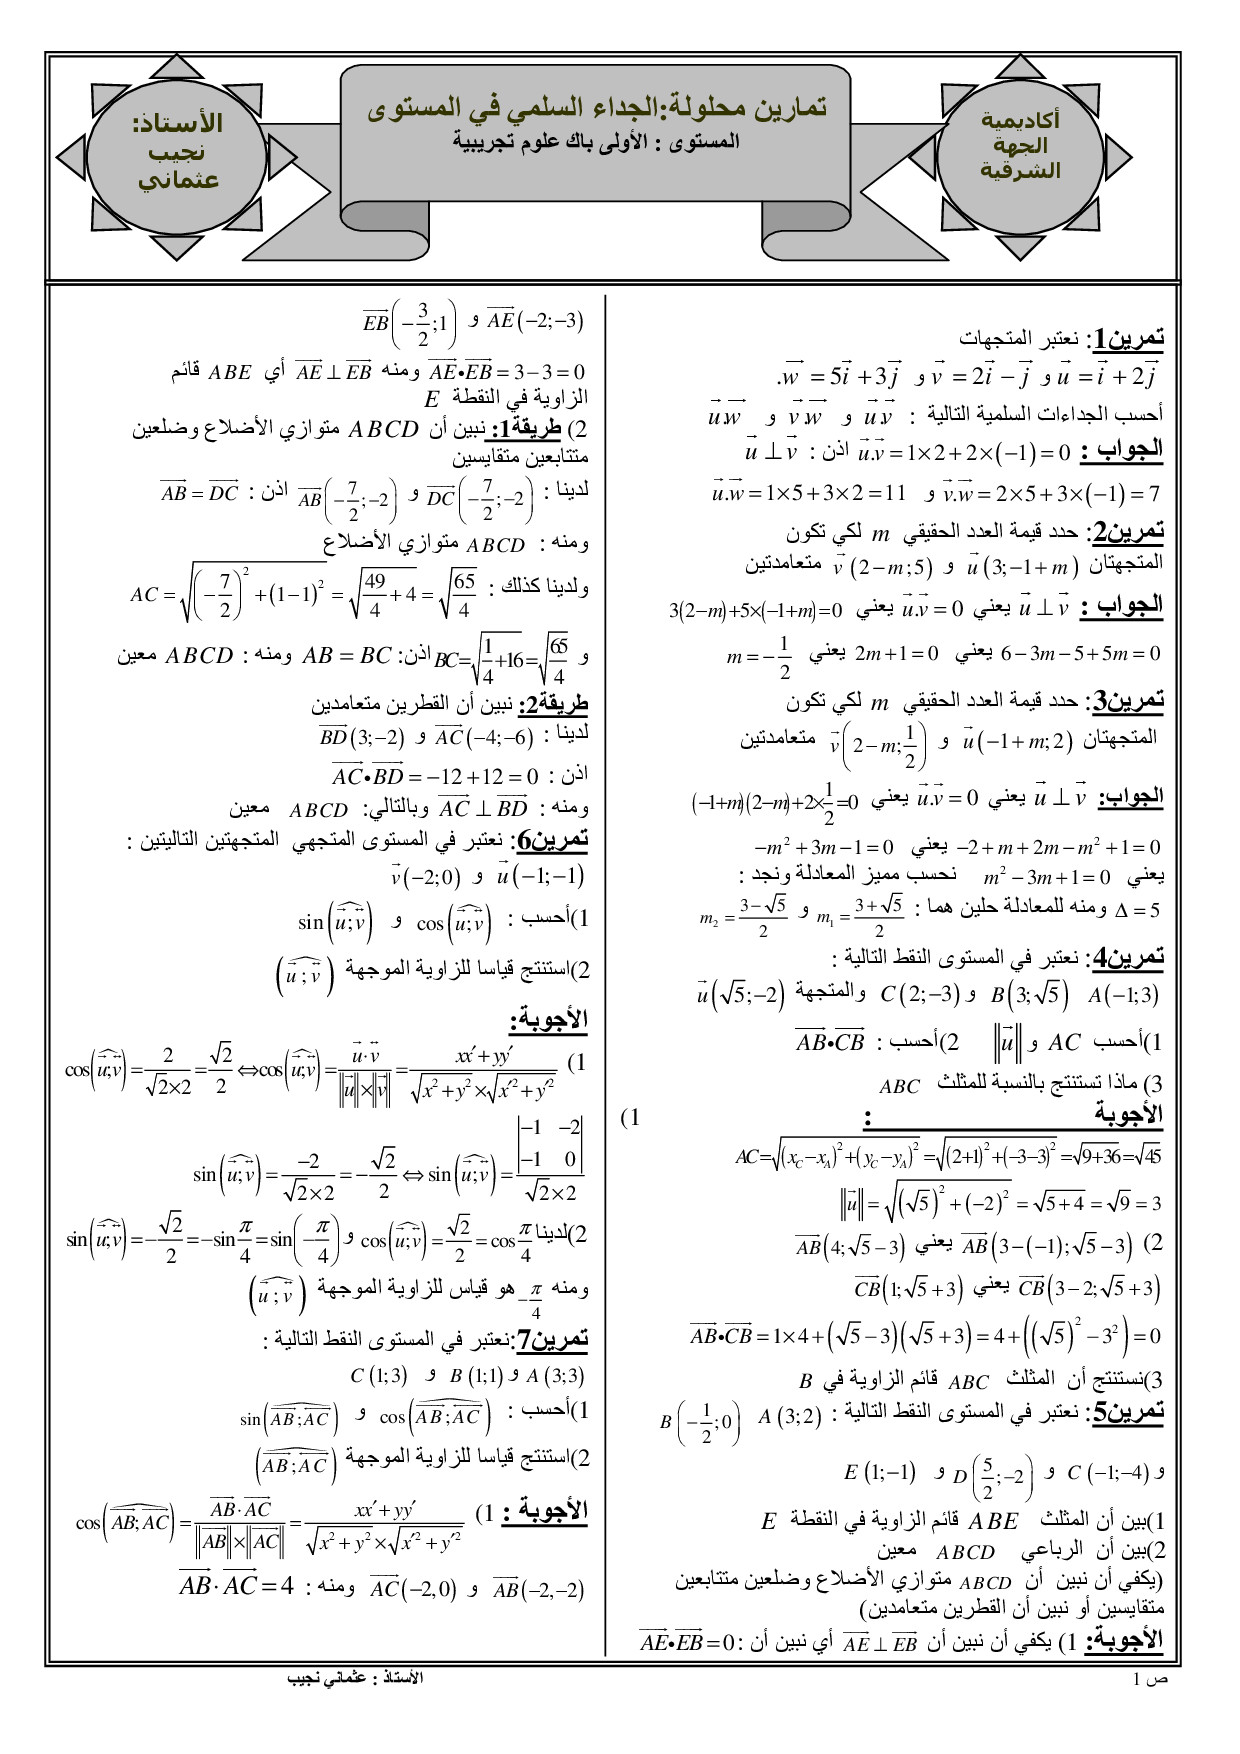 أكاديمية
الجهة
الشرقية
تمارين محلولة:الجداء السلمي في المستوى
المستوى : الأولى باك علوم تجريبية
الأستاذ:
نجيب
عثماني
تمرين1: نعتبر المتجهات
u⃗ = i⃗ + 2j⃗ و v⃗ = 2i⃗ − j⃗ و w⃗ = 5i⃗ + 3j⃗.
أحسب الجداءات السلمية التالية : u⃗.v⃗ و v⃗.w⃗ و u⃗.w⃗
الجواب : u⃗.v⃗ = 1×2 + 2×(−1) = 0 اذن : u⃗ ⊥ v⃗
v⃗.w⃗ = 2×5 + 3×(−1) = 7 و u⃗.w⃗ = 1×5 + 3×2 = 11
تمرين2: حدد قيمة العدد الحقيقي m لكي تكون
المتجهتان u⃗(3;−1+m) و v⃗(2−m;5) متعامدتين
الجواب : u⃗ ⊥ v⃗ يعني u⃗.v⃗ = 0 يعني 3(2−m)+5×(−1+m)=0
6−3m−5+5m = 0 يعني 2m+1 = 0 يعني m = −1/2
تمرين3: حدد قيمة العدد الحقيقي m لكي تكون
المتجهتان u⃗(−1+m;2) و v⃗(2−m;1/2) متعامدتين
الجواب: u⃗ ⊥ v⃗ يعني u⃗.v⃗ = 0 يعني (−1+m)(2−m)+2×1/2=0
−2+m+2m−m²+1 = 0 يعني −m²+3m−1 = 0
يعني m²−3m+1 = 0 نحسب مميز المعادلة ونجد :
Δ = 5 ومنه للمعادلة حلين هما : m₁ = (3+√5)/2 و m₂ = (3−√5)/2
تمرين4: نعتبر في المستوى النقط التالية :
A(−1;3) B(3;√5) و C(2;−3) والمتجهة u⃗(√5;−2)
1)أحسب AC و ‖u⃗‖ 2)أحسب : AB⃗•CB⃗
3) ماذا تستنتج بالنسبة للمثلث ABC
الأجوبة : 1)
AC=√((x_C−x_A)²+(y_C−y_A)²)=√((2+1)²+(−3−3)²)=√(9+36)=√45
‖u⃗‖ = √((√5)²+(−2)²) = √(5+4) = √9 = 3
2) AB⃗(3−(−1);√5−3) يعني AB⃗(4;√5−3)
CB⃗(3−2;√5+3) يعني CB⃗(1;√5+3)
AB⃗•CB⃗ = 1×4+(√5−3)(√5+3) = 4+((√5)²−3²) = 0
3)نستنتج أن المثلث ABC قائم الزاوية في B
تمرين5: نعتبر في المستوى النقط التالية : A(3;2) B(−1/2;0)
و C(−1;−4) و D(5/2;−2) و E(1;−1)
1)بين أن المثلث ABE قائم الزاوية في النقطة E
2)بين أن الرباعي ABCD معين
(يكفي أن نبين أن ABCD متوازي الأضلاع وضلعين متتابعين
متقايسين أو نبين أن القطرين متعامدين)
الأجوبة: 1) يكفي أن نبين أن AE⃗ ⊥ EB⃗ أي نبين أن : AE⃗•EB⃗ = 0
AE⃗(−2;−3) و EB⃗(−3/2;1)
AE⃗•EB⃗ = 3−3 = 0 ومنه AE⃗ ⊥ EB⃗ أي ABE قائم
الزاوية في النقطة E
2) طريقة1: نبين أن ABCD متوازي الأضلاع وضلعين
متتابعين متقايسين
لدينا : DC⃗(−7/2;−2) و AB⃗(−7/2;−2) اذن : AB⃗ = DC⃗
ومنه : ABCD متوازي الأضلاع
ولدينا كذلك : AC = √((−7/2)²+(1−1)²) = √(49/4+4) = √(65/4)
و BC=√(1/4+16)=√(65/4) اذن: AB = BC ومنه : ABCD معين
طريقة2: نبين أن القطرين متعامدين
لدينا : AC⃗(−4;−6) و BD⃗(3;−2)
اذن : AC⃗•BD⃗ = −12+12 = 0
ومنه : AC⃗ ⊥ BD⃗ وبالتالي: ABCD معين
تمرين6: نعتبر في المستوى المتجهي المتجهتين التاليتين :
u⃗(−1;−1) و v⃗(−2;0)
1)أحسب : cos(u⃗;v⃗) و sin(u⃗;v⃗)
2)استنتج قياسا للزاوية الموجهة (u⃗;v⃗)
الأجوبة:
1) cos(u⃗;v⃗) = 2/(√2×2) = √2/2 ⇔ cos(u⃗;v⃗) = u⃗·v⃗/(‖u⃗‖×‖v⃗‖) = (xx′+yy′)/(√(x²+y²)×√(x′²+y′²))
sin(u⃗;v⃗) = −2/(√2×2) = −√2/2 ⇔ sin(u⃗;v⃗) = |−1 −2; −1 0|/(√2×2)
2)لدينا cos(u⃗;v⃗) = √2/2 = cos π/4 و sin(u⃗;v⃗) = −√2/2 = −sin π/4 = sin(−π/4)
ومنه −π/4 هو قياس للزاوية الموجهة (u⃗;v⃗)
تمرين7:نعتبر في المستوى النقط التالية :
A(3;3) و B(1;1) و C(1;3)
1)أحسب : cos(AB⃗;AC⃗) و sin(AB⃗;AC⃗)
2)استنتج قياسا للزاوية الموجهة (AB⃗;AC⃗)
الأجوبة : 1) cos(AB⃗;AC⃗) = AB⃗·AC⃗/(‖AB⃗‖×‖AC⃗‖) = (xx′+yy′)/(√(x²+y²)×√(x′²+y′²))
AB⃗(−2,−2) و AC⃗(−2,0) ومنه : AB⃗·AC⃗ = 4
ص 1
الأستاذ : عثماني نجيب